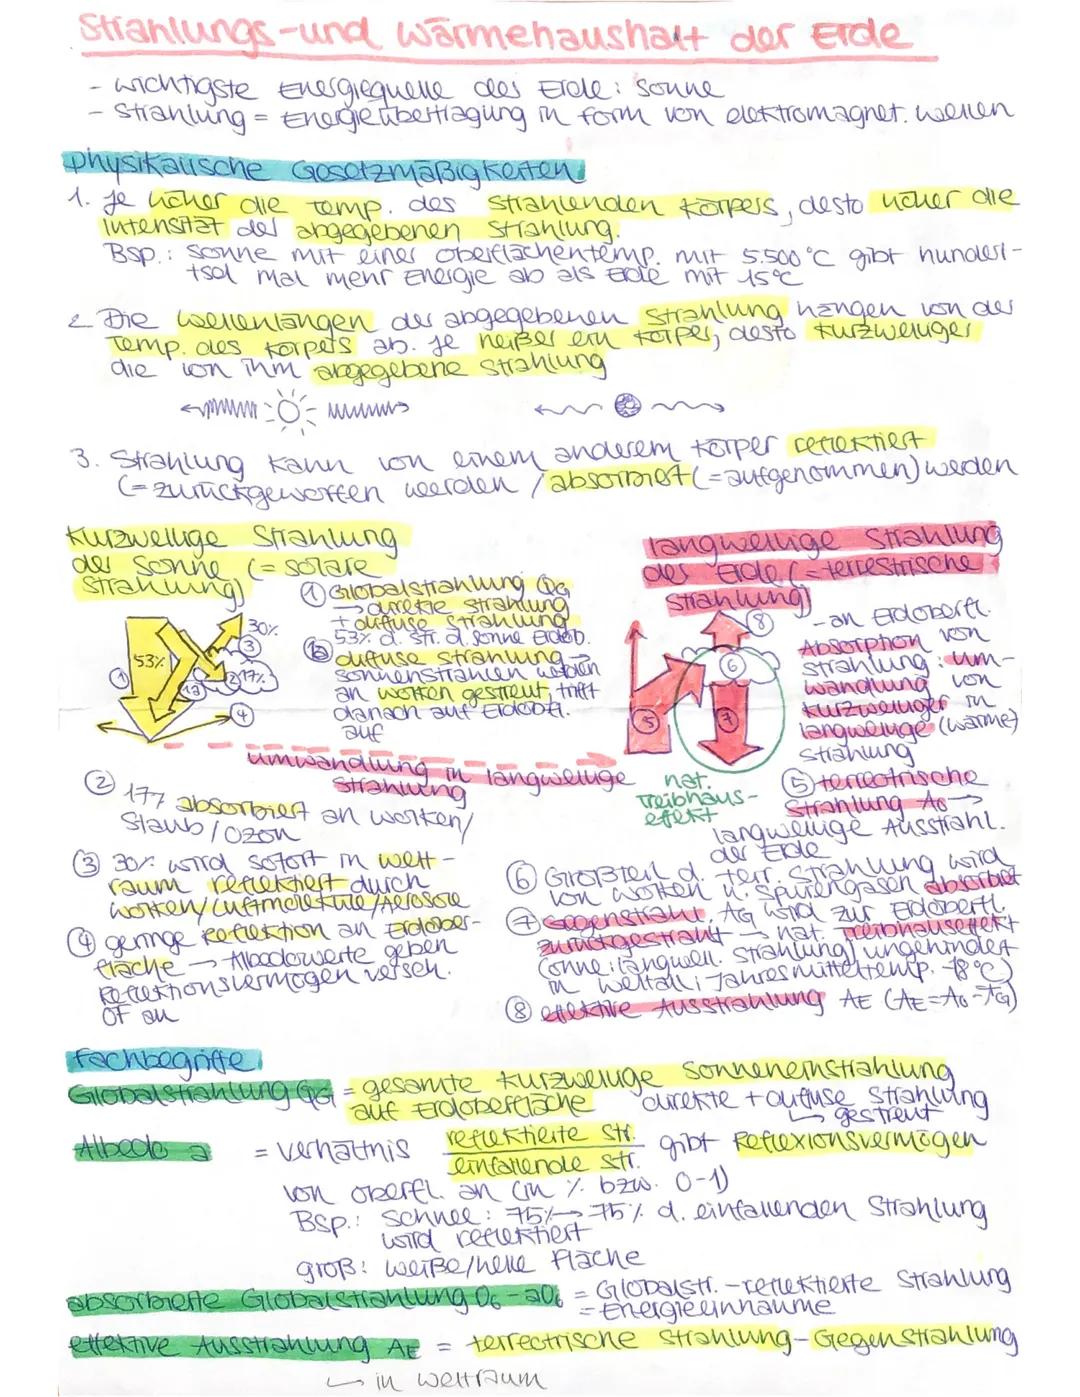 Strahlungs-und Wärmehaushalt der Erde
- wichtigste Energiequelle des Erde: Sonne
- Strahlung = Energieübertragung in form von elektromagnet. wellen
physikalische Gesetzmäßigkeiten
1. Je höher die Temp. des strahlenden Körpers, desto höher die
Intensität der abgegebenen Strahlung.
Bsp.: Sonne mit einer Oberflächentemp. mit 5.500°C gibt hundert-
tsd mal mehr Energie ab als Erde mit 15°C
2. Die Wellenlängen der abgegebenen Strahlung hängen von der
Temp. des Körpers ab. Je heißer ein Körper, desto kurzwelliger
die von ihm abgegebene Strahlung
3. Strahlung kann von einem anderem Körper reflektiert
(=zurückgeworfen werden / absorbiert (=aufgenommen) werden
Kurzwellige Strahlung
der Sonne (= solare
Strahlung)
53%
30%
17%
1
1a
2
3
4
① Globalstrahlung QG
→ direkte Strahlung
+ diffuse Strahlung
53% d. Str. d. Sonne Erdob.
1a diffuse Strahlung →
Sonnenstrahlen werden
an Wolken gestreut, trifft
danach auf Erdobfl.
auf
Umwandlung in langwellige
Strahlung
② 17% absorbiert an Wolken/
Staub/Ozon
③ 30% wird sofort in Welt-
raum reflektiert durch
Wolken/Luftmoleküle/Aerosole
④ geringe Reflektion an Erdober-
fläche → Albedowerte geben
Reflektionsvermögen versch.
OF an
langwellige Strahlung
der Erde (= terrestrische
Strahlung)
5
6
7
8
nat.
Treibhaus-
effekt
- an Erdoberfl.
Absorption von
Strahlung: Um-
wandlung von
kurzwelliger in
langwellige (Wärme)
Strahlung
⑤ terrestrische
Strahlung Ao →
langwellige Ausstrahl.
der Erde
⑥ Großteil d. terr. Strahlung wird
von Wolken u. Spurengasen absorbiet
⑦ Gegenstrahl. AG wird zur Erdoberfl.
zurückgestrahlt → nat. Treibhauseffekt
(ohne: langwell. Strahlung ungehindert
in Weltall; Jahresmitteltemp. -18°C)
⑧ effektive Ausstrahlung AE (AE=Ao-AG)
Fachbegriffe
Globalstrahlung QG = gesamte kurzwellige Sonneneinstrahlung
auf Erdoberfläche direkte + diffuse Strahlung
↳ gestreut
Albedo a = Verhältnis reflektierte Str. / einfallende Str. gibt Reflexionsvermögen
von Oberfl. an (in % bzw. 0-1)
Bsp.: Schnee: 75% → 75% d. einfallenden Strahlung
wird reflektiert
groß: weiße/helle Fläche
absorbierte Globalstrahlung QG - aQG = Globalstr. - reflektierte Strahlung
= Energieeinnahme
effektive Ausstrahlung AE = terrestrische Strahlung - Gegenstrahlung
↳ in Weltraum